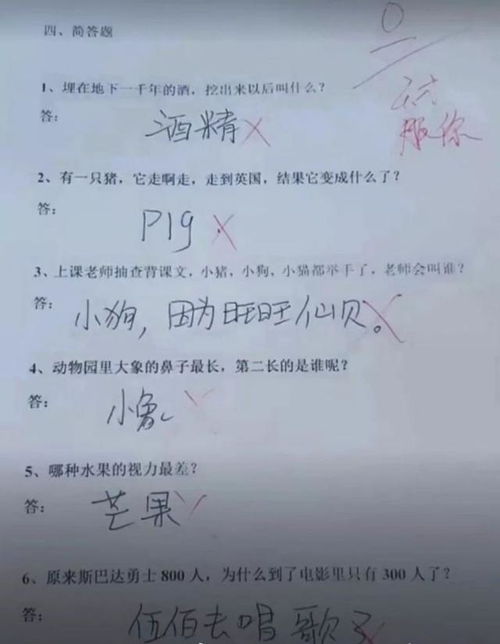 四、简答题
0
1、埋在地下一千年的酒，挖出来以后叫什么？
答：
酒精
服你
2、有一只猪，它走啊走，走到英国，结果它变成什么了？
答：
PIg.
3、上课老师抽查背课文，小猪，小狗，小猫都举手了，老师会叫谁？
答：
小狗，因为旺旺仙贝。
4、动物园里大象的鼻子最长，第二长的是谁呢？
答：
小象
5、哪种水果的视力最差？
答：
芒果
6、原来斯巴达勇士 800 人，为什么到了电影里只有 300 人了？
答：
伍佰去唱歌了